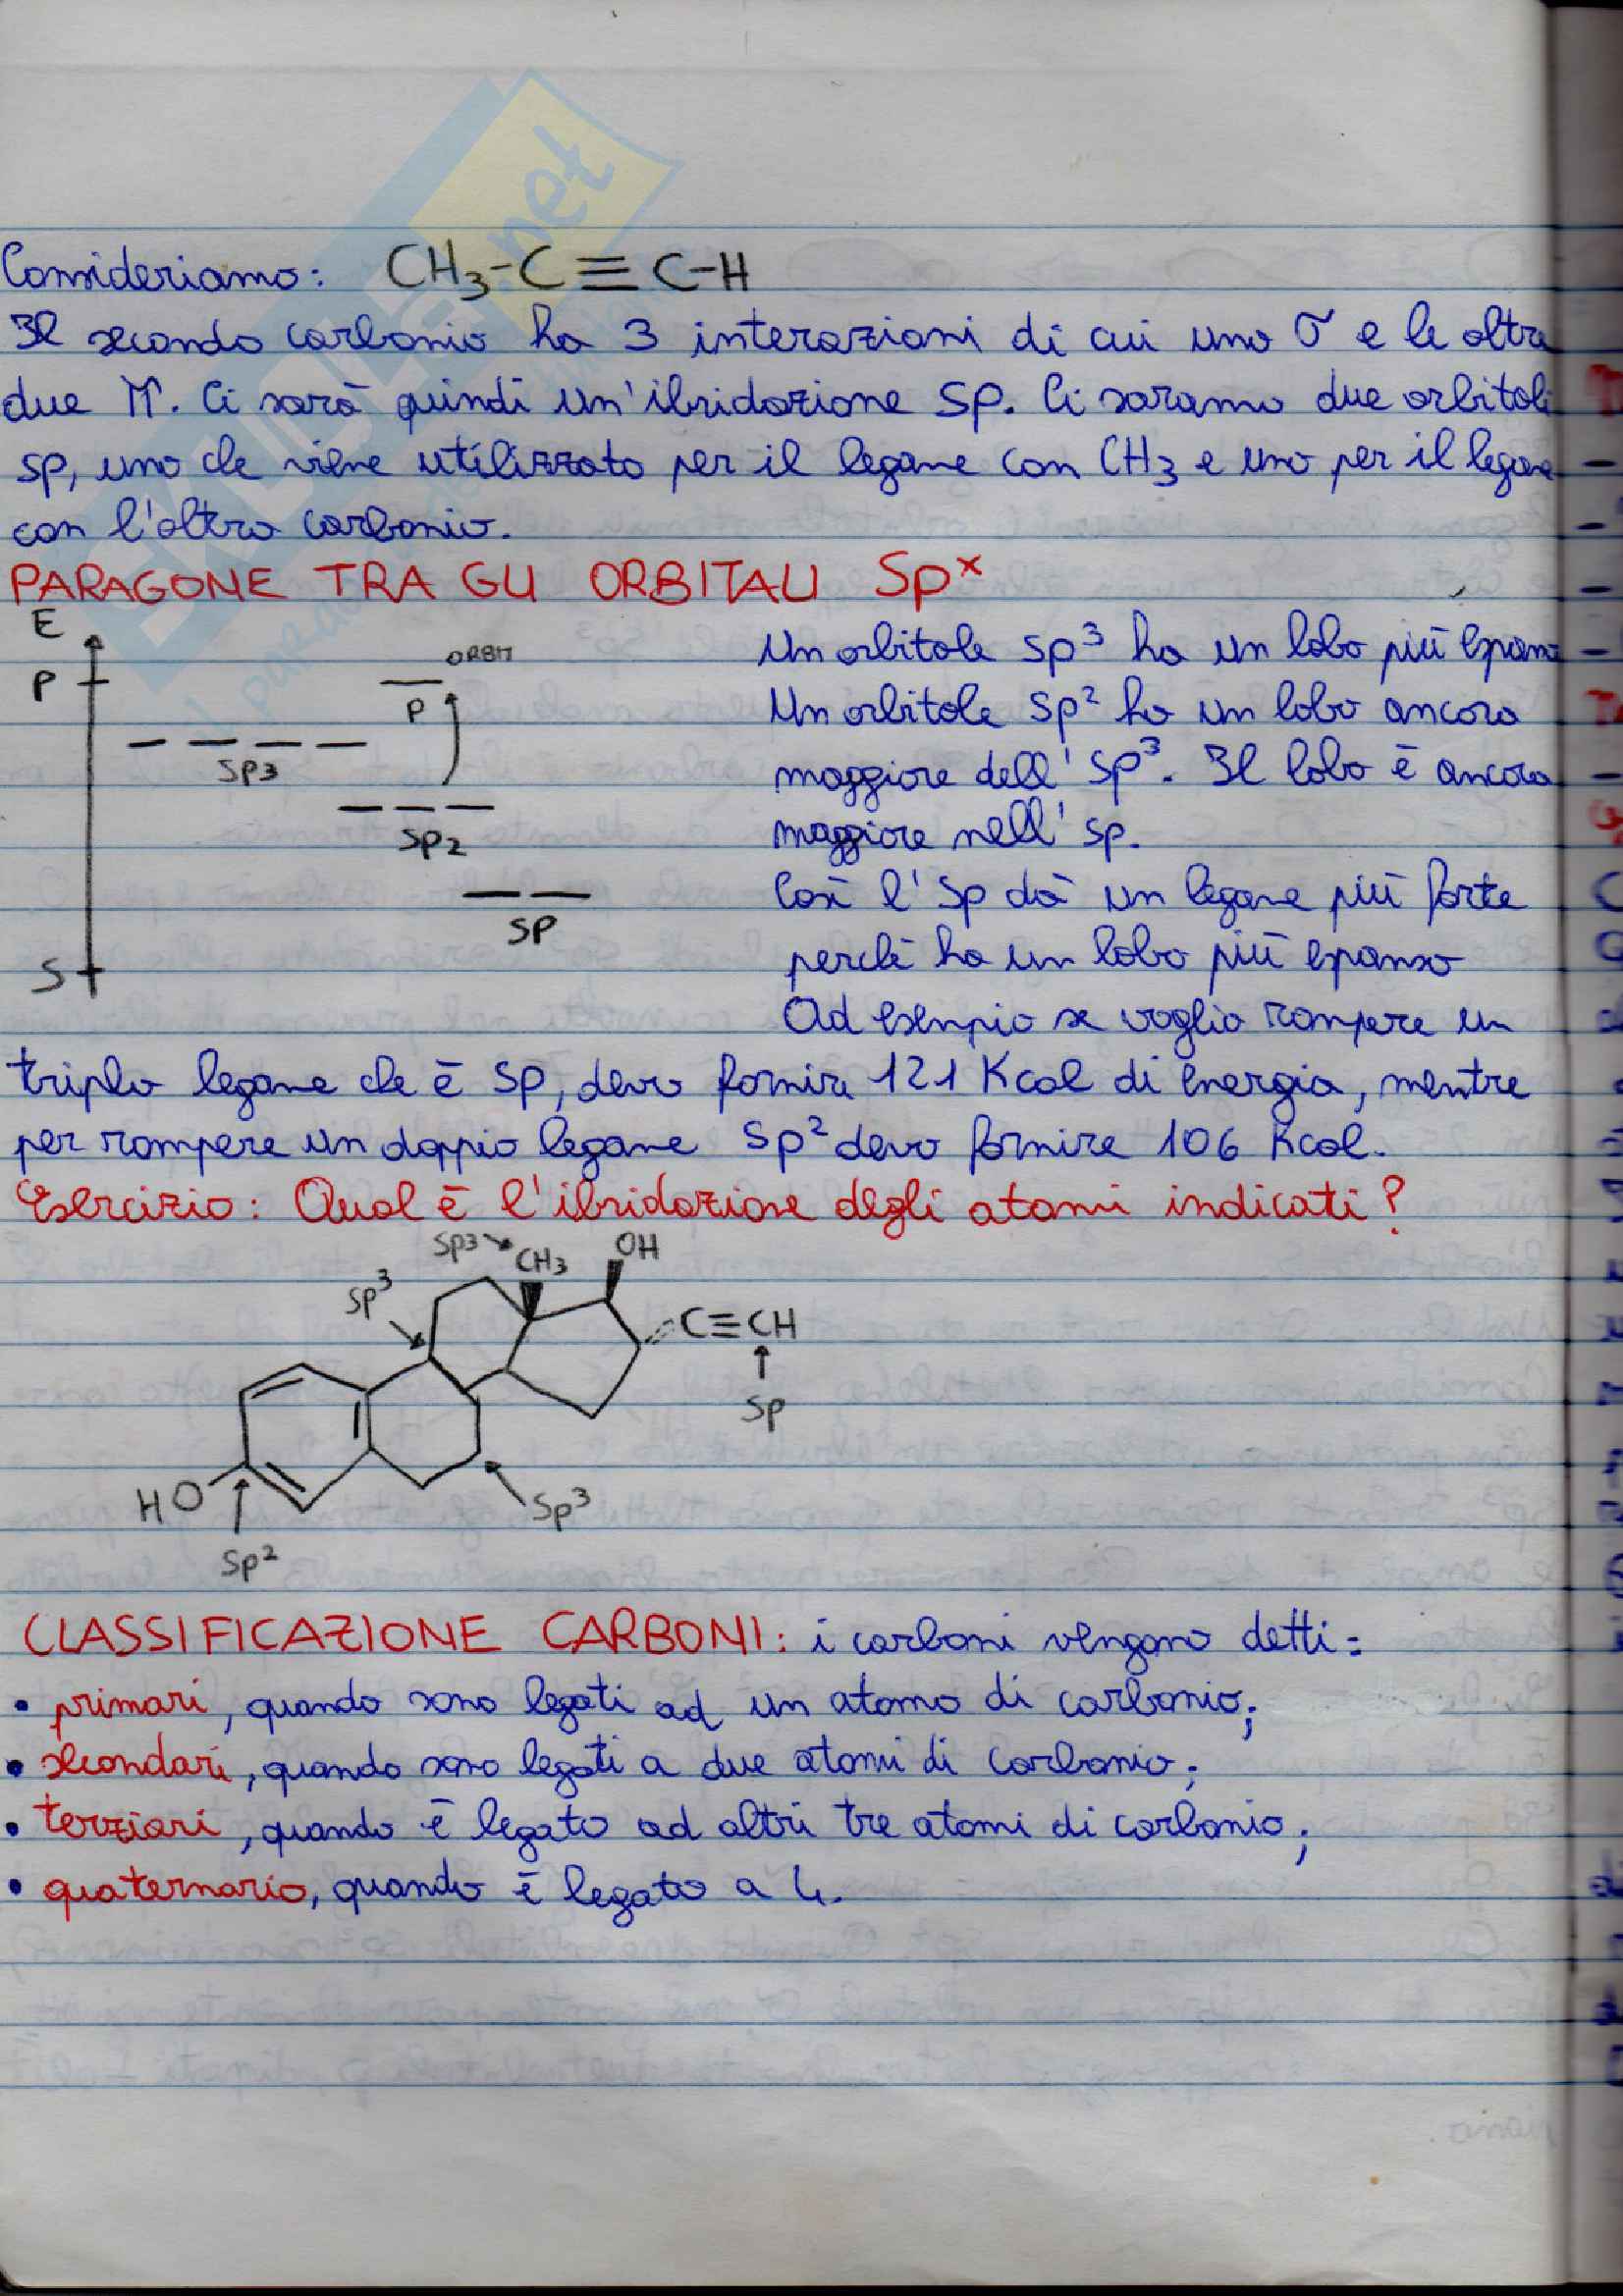 Consideriamo: CH3-C≡C-H
Il secondo carbonio ha 3 interazioni di cui uno σ e le altre
due π. Ci sarà quindi un'ibridazione sp. Ci saranno due orbitali
sp, uno che viene utilizzato per il legame con CH3 e uno per il legame
con l'altro carbonio.
PARAGONE TRA GLI ORBITALI Sp^x
E
P
ORBIT
P
SP3
SP2
SP
S
Un orbitale sp³ ha un lobo più espanso
Un orbitale sp² ha un lobo ancora
maggiore dell' sp³. Il lobo è ancora
maggiore nell' sp.
Così l' sp dà un legame più forte
perché ha un lobo più espanso
Ad esempio se voglio rompere un
triplo legame che è sp, devo fornire 121 Kcal di energia, mentre
per rompere un doppio legame sp² devo fornire 106 Kcal.
Esercizio: Qual è l'ibridazione degli atomi indicati?
SP3
CH3
OH
SP³
C≡CH
SP
HO
SP³
SP²
CLASSIFICAZIONE CARBONI: i carboni vengono detti:
• primari, quando sono legati ad un atomo di carbonio;
• secondari, quando sono legati a due atomi di carbonio;
• terziari, quando è legato ad altri tre atomi di carbonio;
• quaternario, quando è legato a 4.